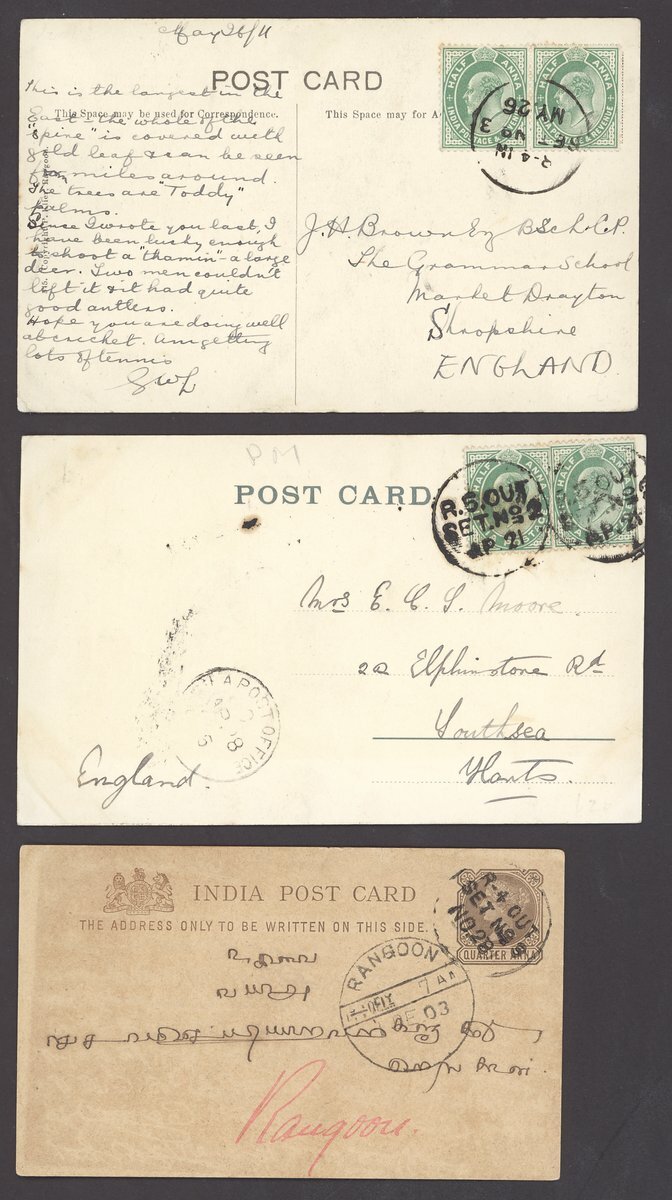 May 26/11
POST CARD
This Space may be used for Correspondence.
This Space may for A
This is the largest in the
East - the whole of the
"spire" is covered with
gold leaf & can be seen
for miles around.
The trees are "Toddy"
palms.
Since I wrote you last, I
have been lucky enough
to shoot a "thamin" - a large
deer. Two men couldn't
lift it & it had quite
good antlers.
Hope you are doing well
at cricket. Am getting
lots of tennis
HALF ANNA
HALF ANNA
R-4 IN
SET No 3
MY 26
J. H. Browne
The Grammar School
Market Drayton
Shropshire
ENGLAND.
POST CARD
HALF ANNA
HALF ANNA
R.5.OUT
SET.No 2
AP 21
AP. 21
Mrs E. C. S. Moore.
2a Elphinstone Rd
Southsea
Hants.
England.
A POST OFFICE
INDIA POST CARD
THE ADDRESS ONLY TO BE WRITTEN ON THIS SIDE.
QUARTER ANNA
R-4 OUT
SET No
NO.28
RANGOON
7 AM
DE 03
Rangoon.